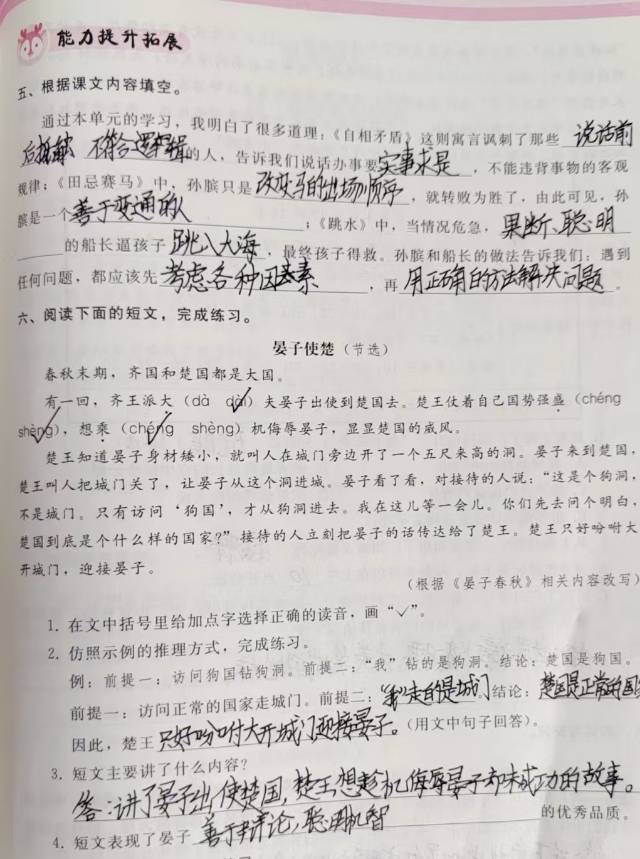 能力提升拓展
五、根据课文内容填空。
通过本单元的学习，我明白了很多道理：《自相矛盾》这则寓言讽刺了那些 说话前
后抵触 不符合逻辑的人，告诉我们说话办事要实事求是，不能违背事物的客观
规律；《田忌赛马》中，孙膑只是改变马的出场顺序，就转败为胜了，由此可见，孙
膑是一个善于变通的人；《跳水》中，当情况危急，果断、聪明
的船长逼孩子跳入大海，最终孩子得救。孙膑和船长的做法告诉我们：遇到
任何问题，都应该先考虑各种因素，再用正确的方法解决问题。
六、阅读下面的短文，完成练习。
晏子使楚（节选）
春秋末期，齐国和楚国都是大国。
有一回，齐王派大（dà dài✓）夫晏子出使到楚国去。楚王仗着自己国势强盛（chéng
shèng✓），想乘（chéng✓ shèng）机侮辱晏子，显显楚国的威风。
楚王知道晏子身材矮小，就叫人在城门旁边开了一个五尺来高的洞。晏子来到楚国，
楚王叫人把城门关了，让晏子从这个洞进城。晏子看了看，对接待的人说：“这是个狗洞，
不是城门。只有访问‘狗国’，才从狗洞进去。我在这儿等一会儿。你们先去问个明白，
楚国到底是个什么样的国家？”接待的人立刻把晏子的话传达给了楚王。楚王只好吩咐大
开城门，迎接晏子。
（根据《晏子春秋》相关内容改写）
1. 在文中括号里给加点字选择正确的读音，画“✓”。
2. 仿照示例的推理方式，完成练习。
例：前提一：访问狗国钻狗洞。前提二：“我”钻的是狗洞。结论：楚国是狗国。
前提一：访问正常的国家走城门。前提二：“我”走的是城门 结论：楚国是正常的国
因此，楚王只好吩咐大开城门，迎接晏子。（用文中句子回答）。
3. 短文主要讲了什么内容？
答：讲了晏子出使楚国，楚王想趁机侮辱晏子却未成功的故事。
4. 短文表现了晏子 善于辩论，聪明机智 的优秀品质。